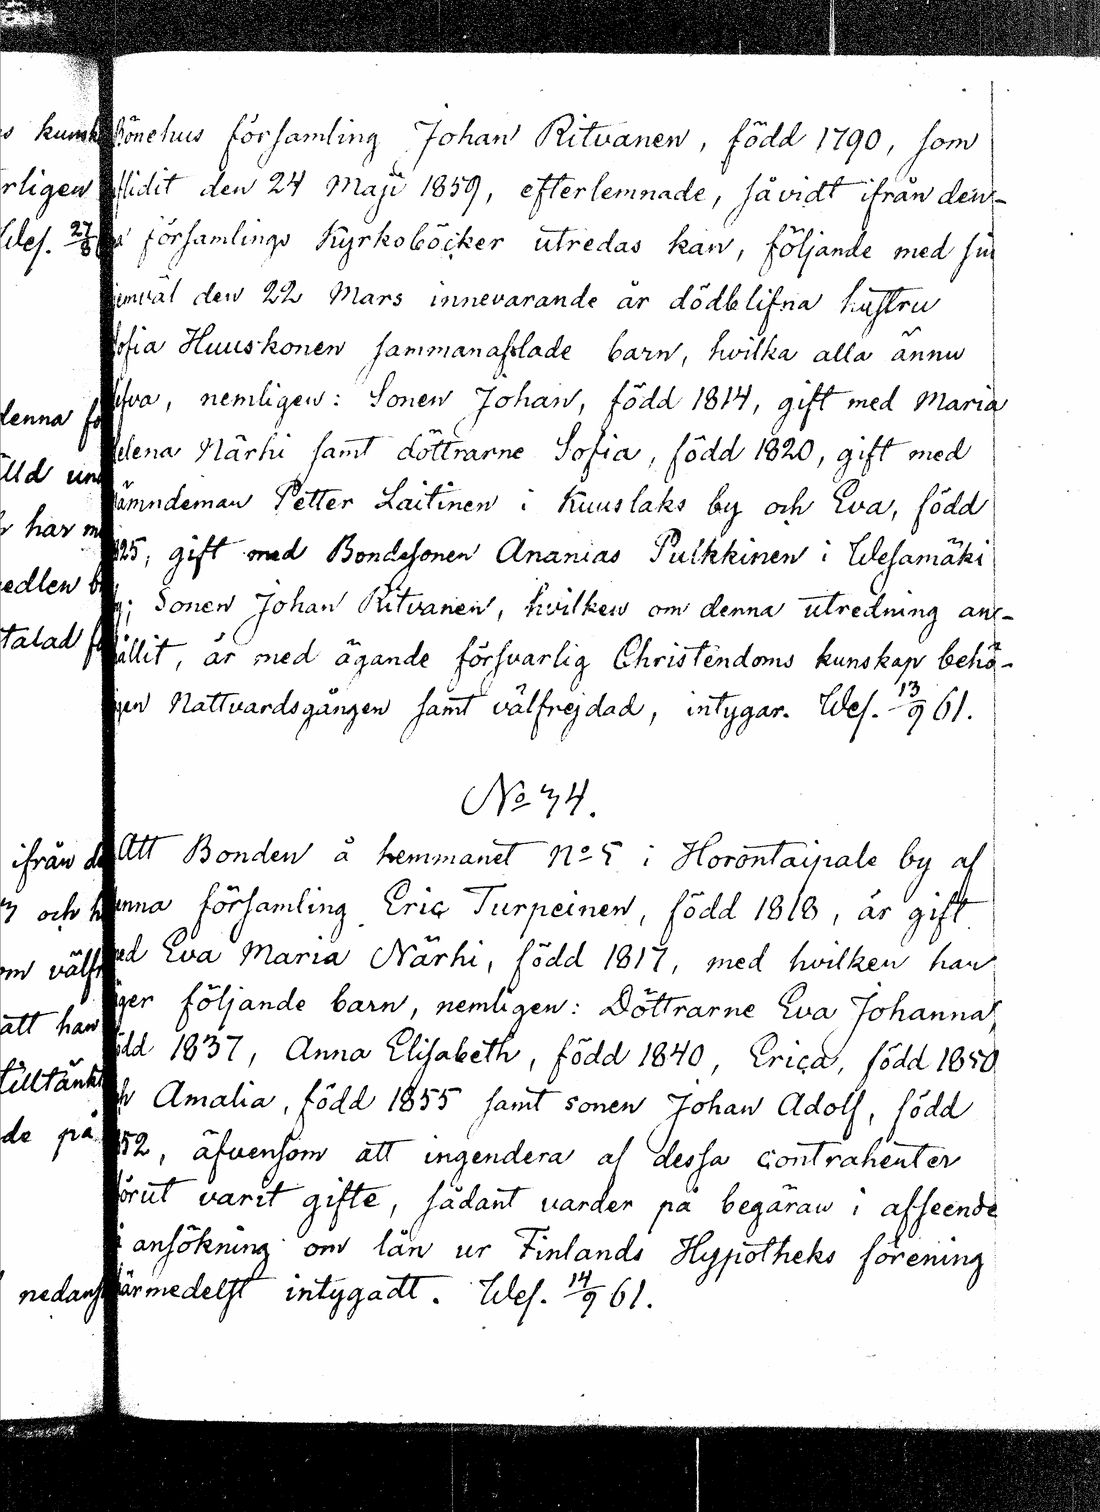 Bönehus församling Johan Ritvanen, född 1790, som
aflidit den 24 Maji 1859, efterlemnade, såvidt ifrån den-
församlings Kyrkoböcker utredas kan, följande med sin
jemväl den 22 Mars innevarande år dödblifna hustru
Sofia Huuskonen sammanaflade barn, hvilka alla ännu
lefva, nemligen: Sonen Johan, född 1814, gift med Maria
Helena Närhi samt döttrarne Sofia, född 1820, gift med
Nämndeman Petter Laitinen i Kuuslaks by och Eva, född
1825, gift med Bondesonen Ananias Pulkkinen i Wesamäki
by; Sonen Johan Ritvanen, hvilken om denna utredning an-
hållit, är med ägande försvarlig Christendoms kunskap behö-
gen Nattvardsgången samt välfrejdad, intygar. Wes. 13/9 61.
No 34.
Att Bonden å hemmanet No 5 i Horontaipale by af
denna församling Eric Turpeinen, född 1818, är gift
med Eva Maria Närhi, född 1817, med hvilken han
äger följande barn, nemligen: Döttrarne Eva Johanna,
född 1837, Anna Elisabeth, född 1840, Erica, född 1850
och Amalia, född 1855 samt sonen Johan Adolf, född
1852, äfvensom att ingendera af dessa contrahenter
förut varit gifte, sådant varder på begäran i afseende
å ansökning om lån ur Finlands Hypotheks förening
härmedelst intygadt. Wes. 14/9 61.